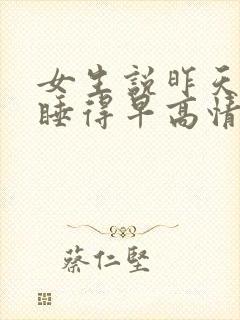 女生說昨天
睡得早高情
蔡仁堅